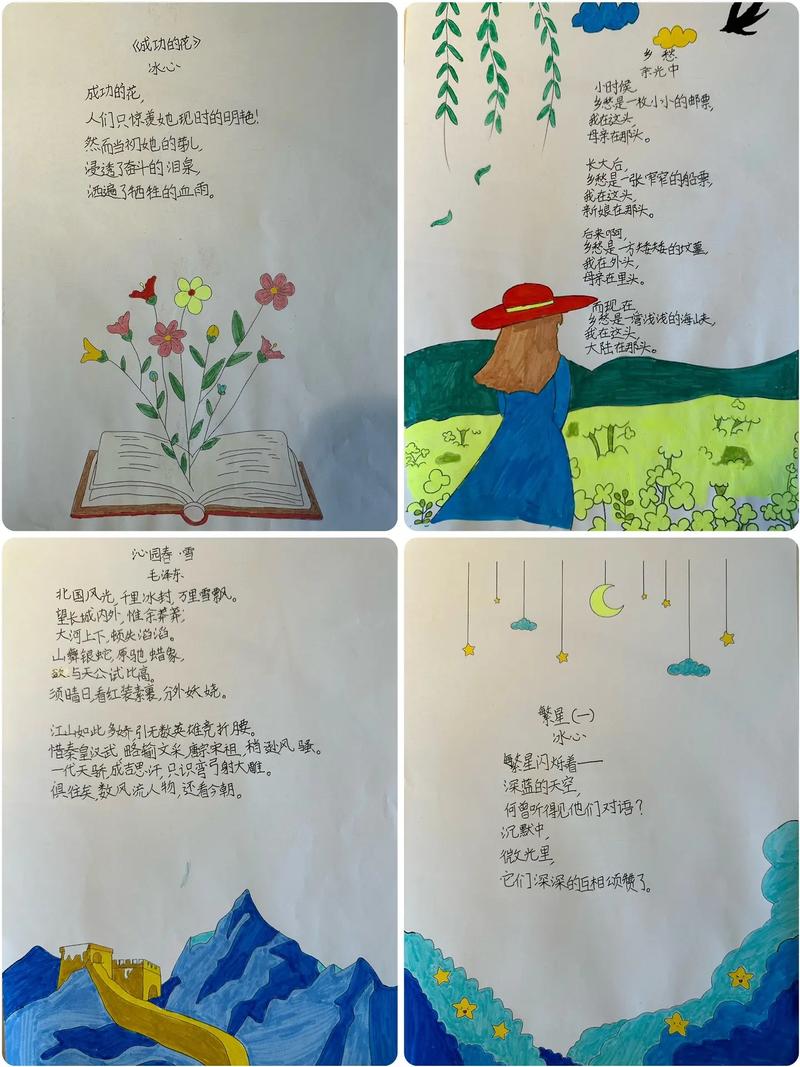 《成功的花》
冰心
成功的花,
人们只惊羡她现时的明艳!
然而当初她的芽儿,
浸透了奋斗的泪泉,
洒遍了牺牲的血雨。
乡愁
余光中
小时候
乡愁是一枚小小的邮票,
我在这头,
母亲在那头。
长大后,
乡愁是一张窄窄的船票,
我在这头,
新娘在那头。
后来啊,
乡愁是一方矮矮的坟墓,
我在外头,
母亲在里头。
而现在,
乡愁是一湾浅浅的海峡,
我在这头,
大陆在那头。
沁园春·雪
毛泽东
北国风光,千里冰封,万里雪飘。
望长城内外,惟余莽莽;
大河上下,顿失滔滔。
山舞银蛇,原驰蜡象,
欲与天公试比高。
须晴日,看红装素裹,分外妖娆。
江山如此多娇,引无数英雄竞折腰。
惜秦皇汉武,略输文采,唐宗宋祖,稍逊风骚。
一代天骄,成吉思汗,只识弯弓射大雕。
俱往矣,数风流人物,还看今朝。
繁星(一)
冰心
繁星闪烁着——
深蓝的天空,
何曾听得见他们对语?
沉默中,
微光里,
它们深深的互相颂赞了。